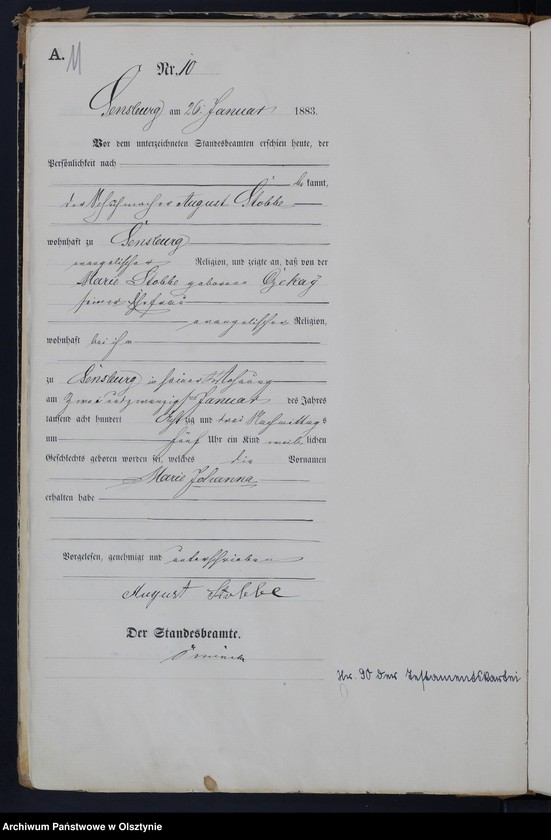 A.
11
Nr. 10
Sensburg am 26. Januar 1883.
Vor dem unterzeichneten Standesbeamten erschien heute, der
Persönlichkeit nach
bekannt,
der Schuhmacher August Stobbe
wohnhaft zu Sensburg
evangelischer Religion, und zeigte an, daß von der
Marie Stobbe geborene
seiner Ehefrau
evangelischer Religion,
wohnhaft bei ihm
zu Sensburg in seiner Wohnung
am zwei und zwanzigsten Januar des Jahres
tausend acht hundert achtzig und drei Nachmittags
um fünf Uhr ein Kind weiblichen
Geschlechts geboren worden sei, welches die Vornamen
Marie Johanna
erhalten habe
Vorgelesen, genehmigt und unterschrieben
August Stobbe
Der Standesbeamte.
Nr. 90 der Testamentskartei
Archiwum Państwowe w Olsztynie